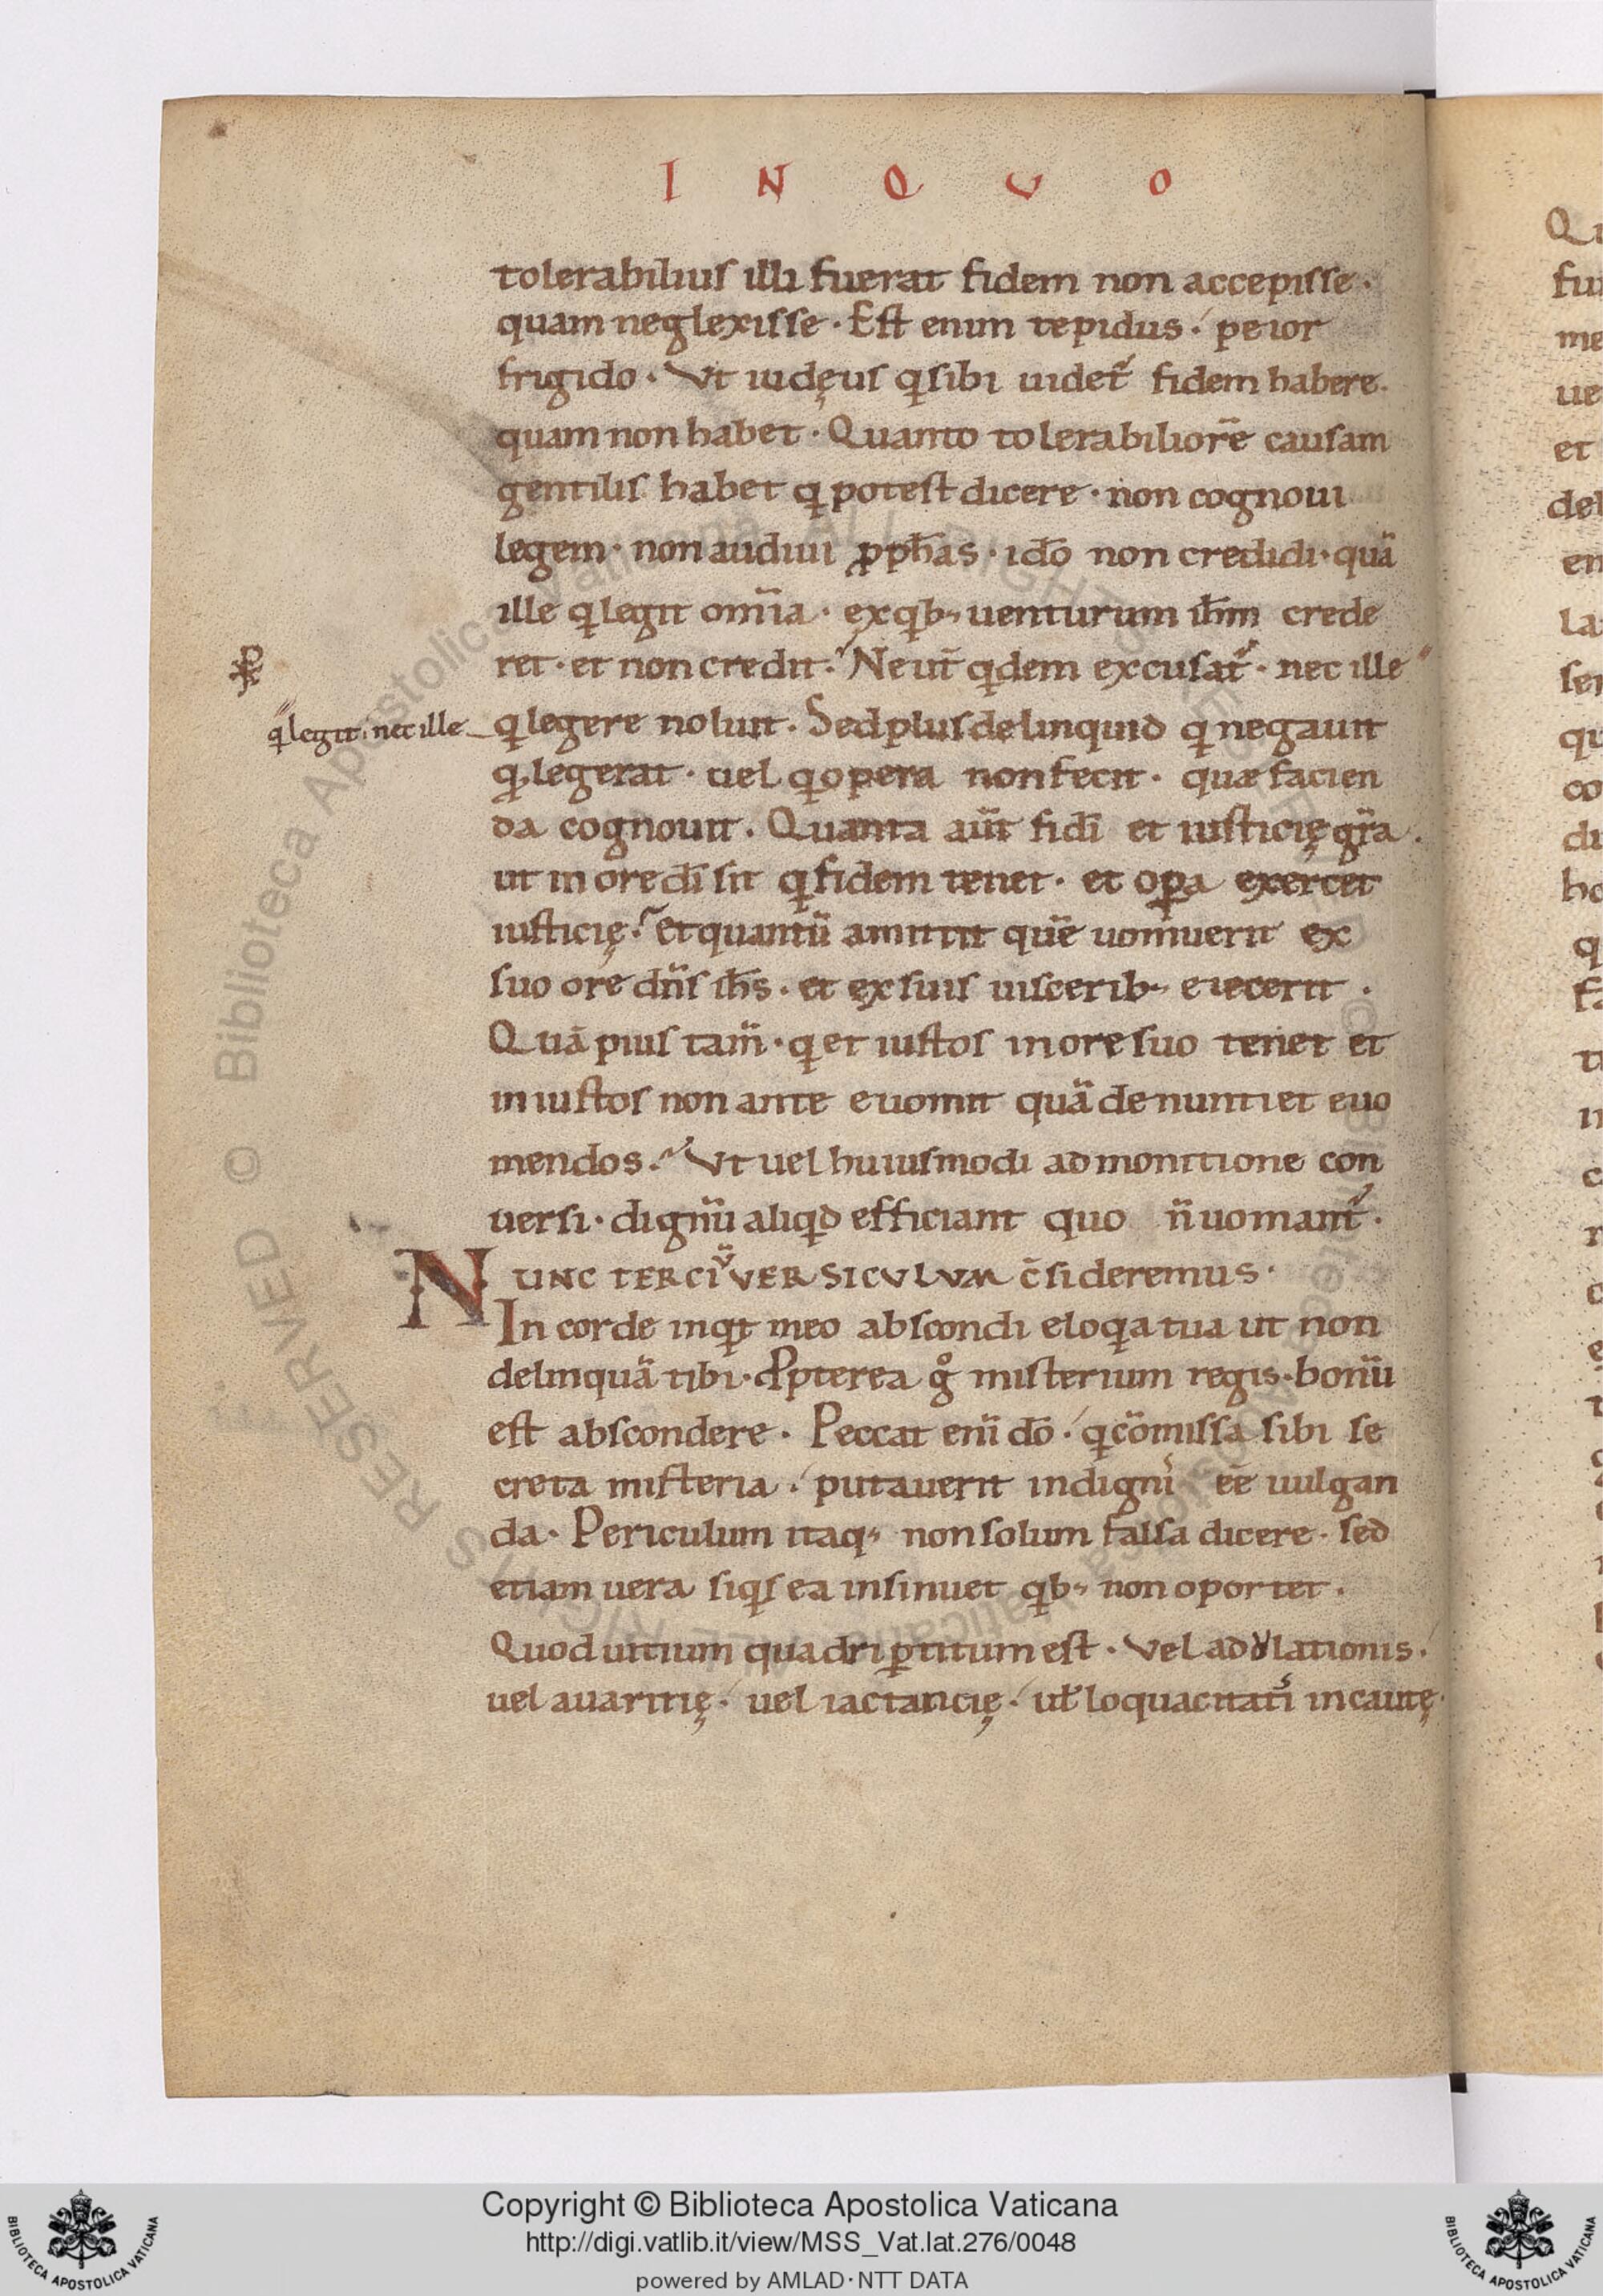 I N Q V O
tolerabilius illi fuerat fidem non accepisse·
quam neglexisse· Est enim tepidus·́ peior
frigido· Vt iudęus q̵ sibi uidet᷑ fidem habere·
quam non habet· Quanto tolerabiliorē causam
gentilis habet q̵ potest dicere· non cognoui
legem· non audiui ꝓph̄as· ido̅ non credidi· quā
ille q̵ legit om̅ia· ex q̵b; uenturum ih̅m crede
ret· et non credit·́ Neut̅ q̵dem excusat᷑· nec ille
q̵ legit· nec ille
q̵ legere noluit· Sed plus delinquid q̵ negauit
q̵ legerat· uel q̵ opera non fecit· quæ facien
da cognouit· Quanta aut̅ fidi̅ et iusticię gr̅a·
ut in ore di̅ sit q̵ fidem tenet· et oꝑa exercet
iusticię·́ Et quantū amittit quē uomuerit ex
suo ore dn̅s ih̅s· et ex suis uiscerib; eiecerit·
Quā pius tam̅· q̵ et iustos in ore suo tenet et
iniustos non ante euomit quā denuntiet euo
mendos·́ Vt uel huiusmodi admonitione con
uersi· dignū aliq̵d efficiant quo n̅ uomant᷑·
NUNC TERCIV̅ VERSICVLVM c̅sideremus·
In corde inq̵t meo abscondi eloq̵a tua ut non
delinquā tibi· Ꝓpterea gͦ misterium regis· bonū
est abscondere· Peccat eni̅ do̅·́ q̵ cōmissa sibi se
creta misteria·́ putauerit indigni̅ ee̅ uulgan
da· Periculum itaq; non solum falsa dicere· sed
etiam uera siq̵s ea insinuet q̵b; non oportet·
Quod uitium quadriꝑtitum est· Vel adulationis·́
uel auaritię·́ uel iactancię·́ ul̵ loquacitati̅ incautę·
Copyright © Biblioteca Apostolica Vaticana
http://digi.vatlib.it/view/MSS_Vat.lat.276/0048
powered by AMLAD·NTT DATA